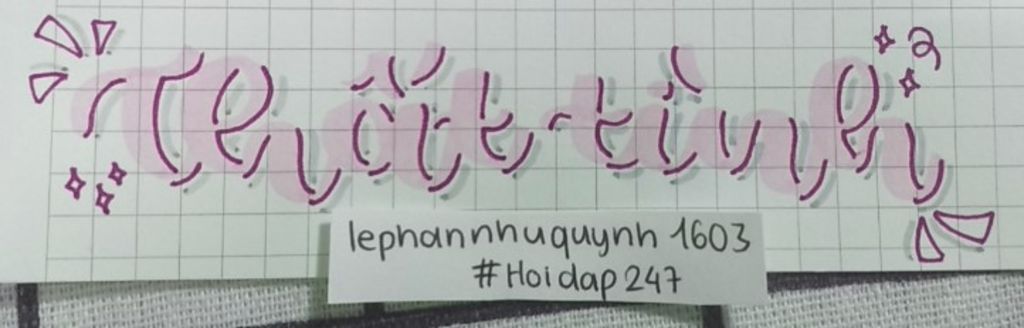 Thất tình 2
lephannhuquynh 1603
#Hoidap247